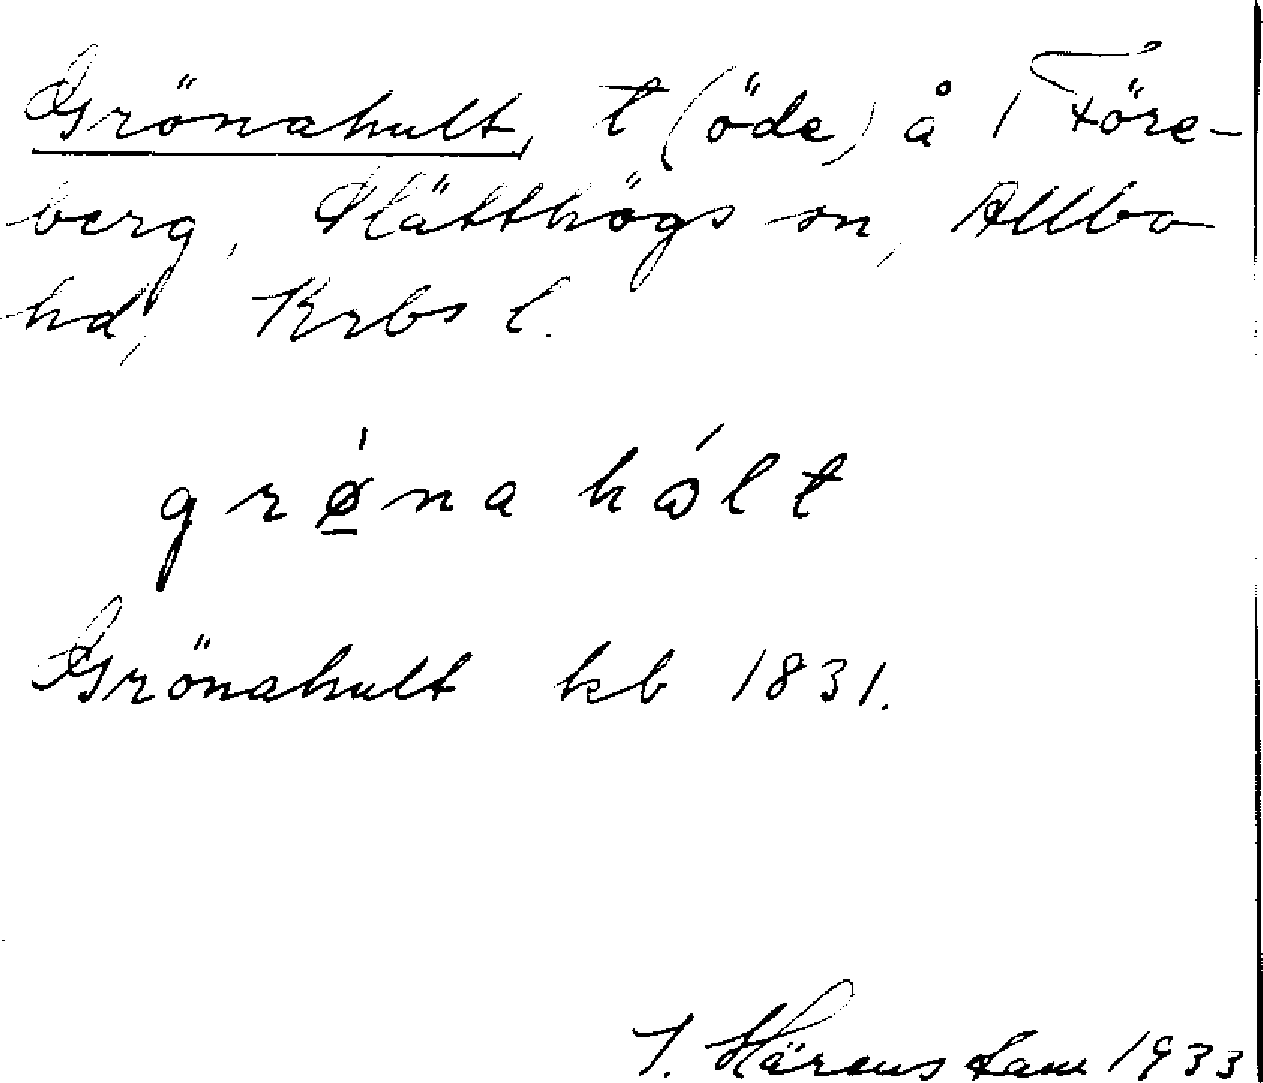 Grönahult, t (öde) å 1 Före-
berg, Slätthögs sn, Allbo
hd, Krbs l.
grǿ̱na hɷ́lt
Grönahult kb 1831.
I. Härenstam 1933